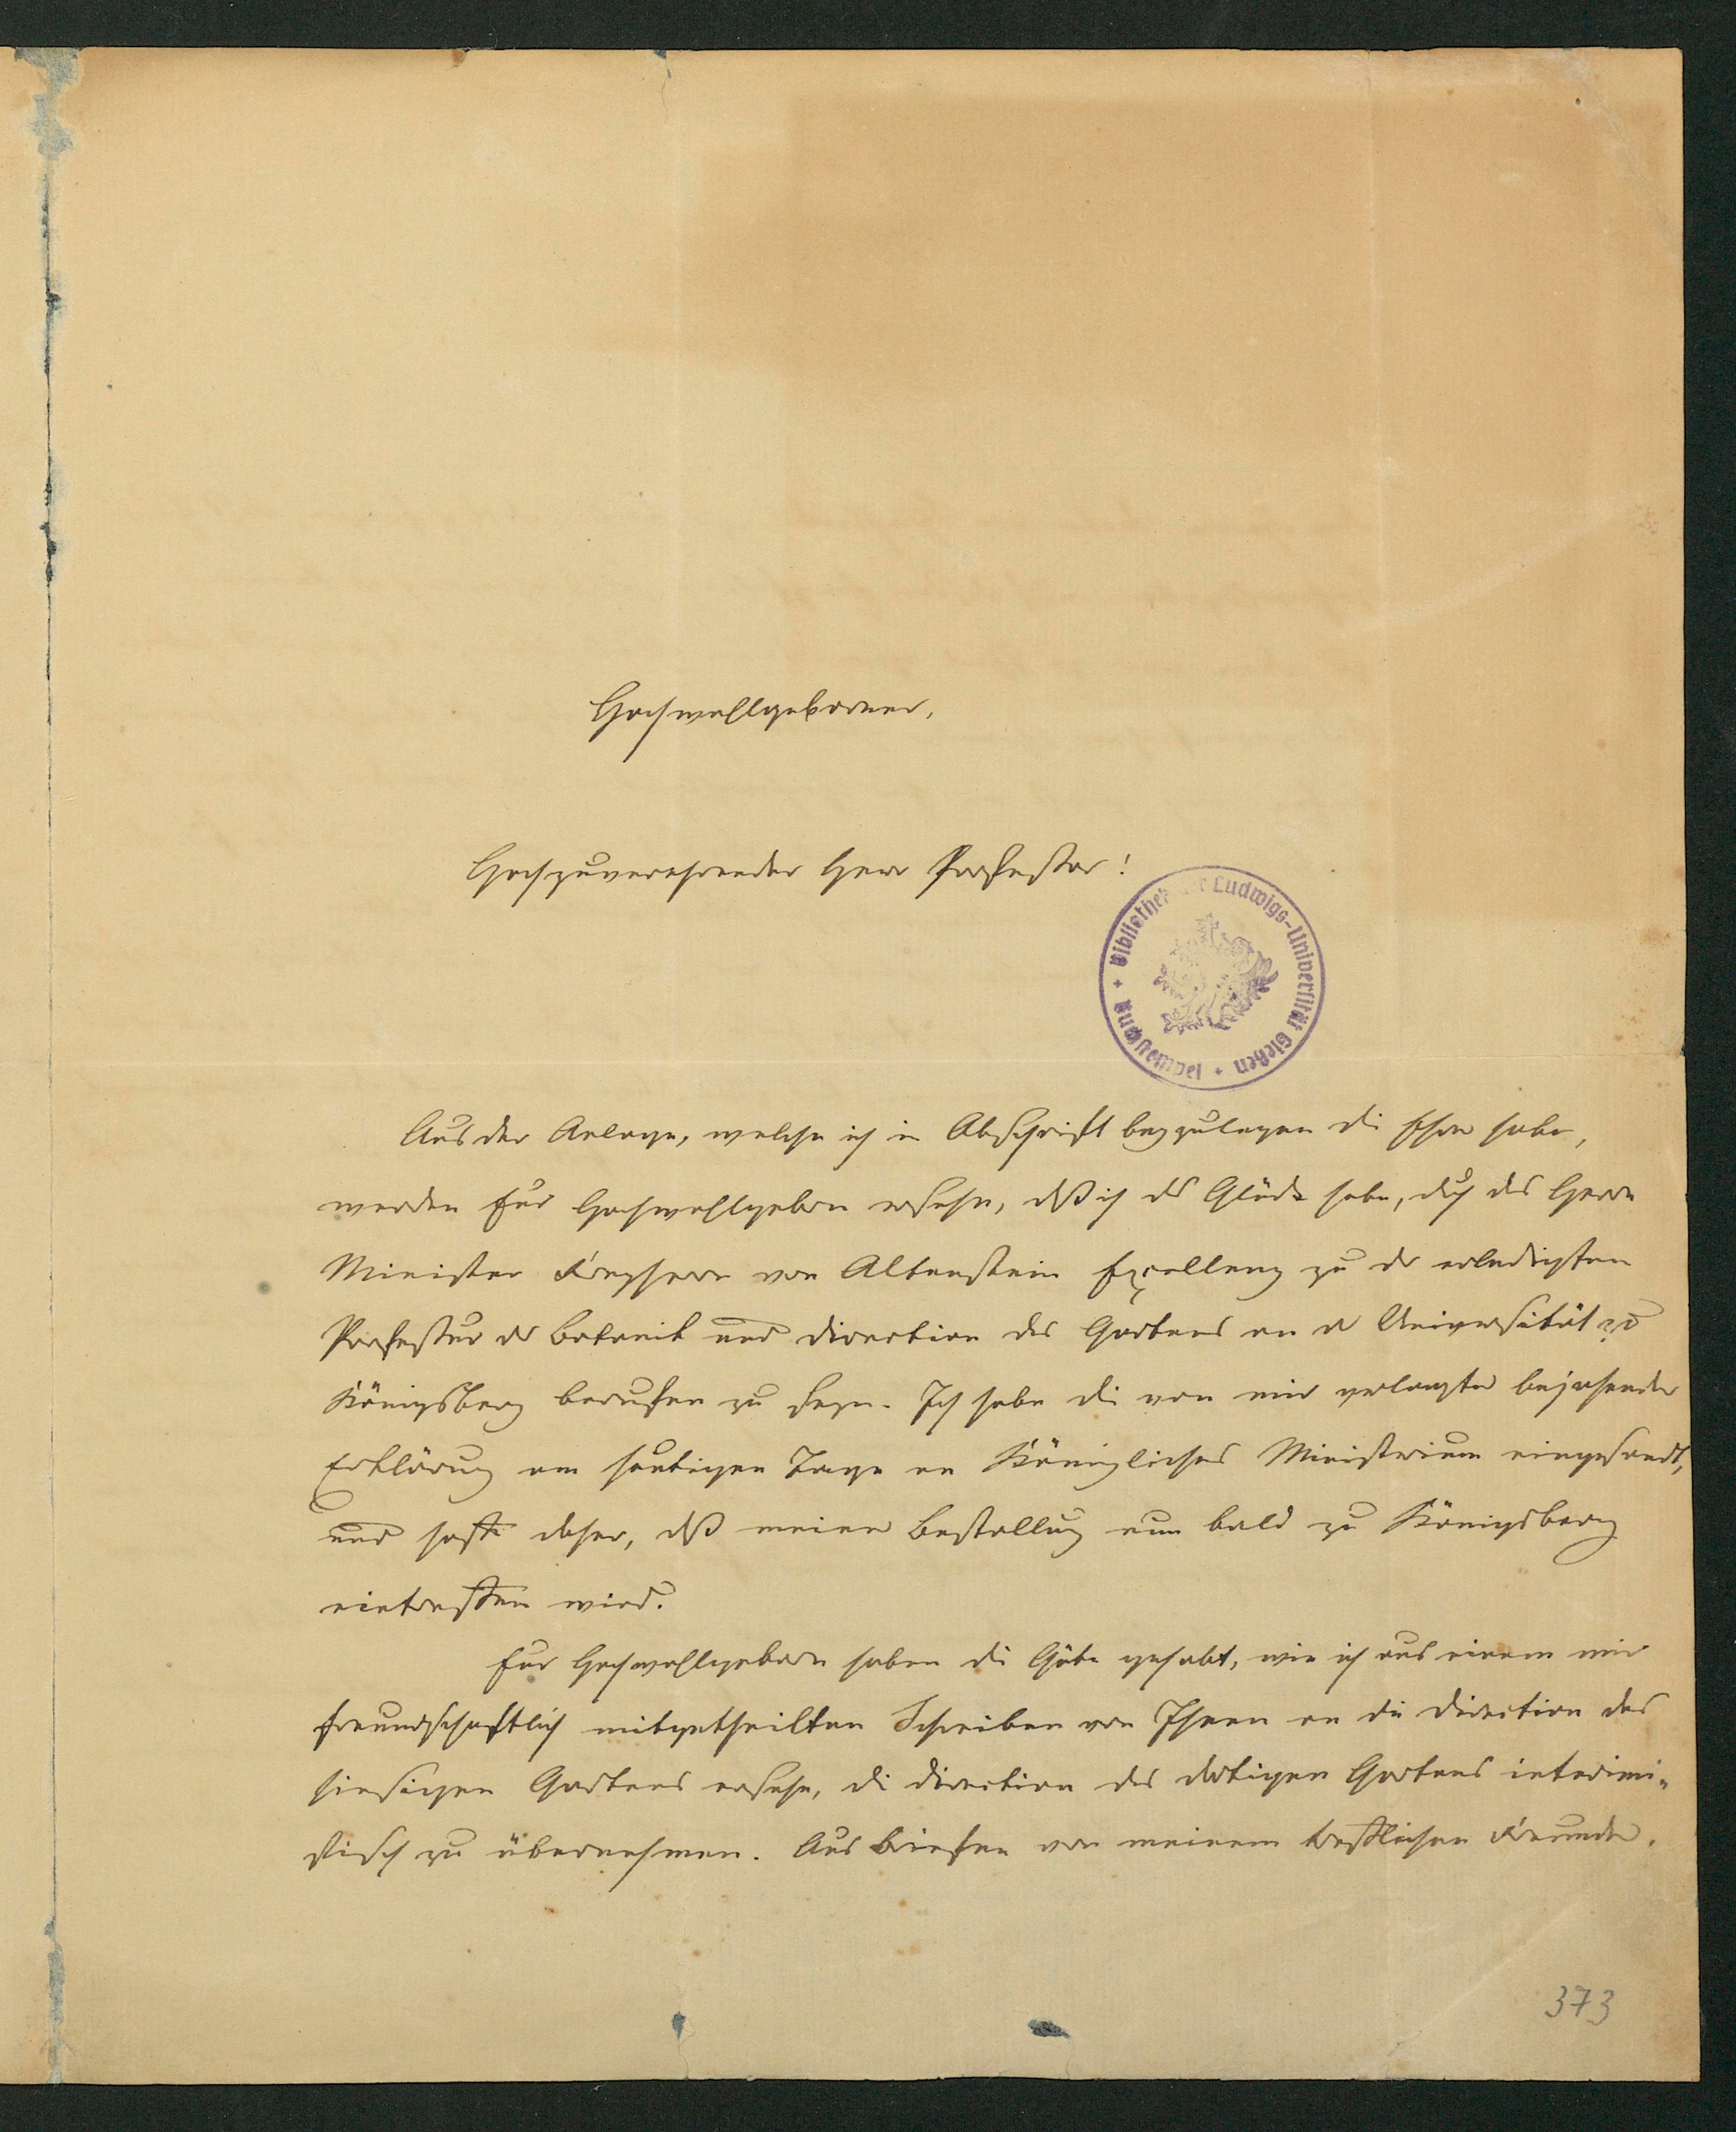 Hochwohlgeborner,
Hochzuverehrender Herr Professor!
Bibliothek der Ludwigs-Universität Gießen
Aus der Anlage, welche ich in Abschrift beyzulegen die Ehre habe,
werden Eur Hochwohlgeborn ersehn, daß ich das Glück habe, durch des Herrn
Minister Freyherrn von Altenstein Excellenz zu der erledigten
Professur der Botanik und Direction des Gartens an der Universität zu
Königsberg berufen zu seyn. Ich habe die von mir verlangte bejahende
Erklärung am heutigen Tage an Königliches Ministerium eingesandt,
und hoffe daher, daß meine Bestallung nun bald zu Königsberg
eintreffen wird.
Eur Hochwohlgeborn haben die Güte gehabt, wie ich aus einem mir
freundschaftlich mitgetheilten Schreiben von Ihnen an die Direction des
hiesigen Gartens ersehe, die Direction des dortigen Gartens interimi-
stisch zu übernehmen. Aus Briefen von meinem trefflichen Freunde,
373